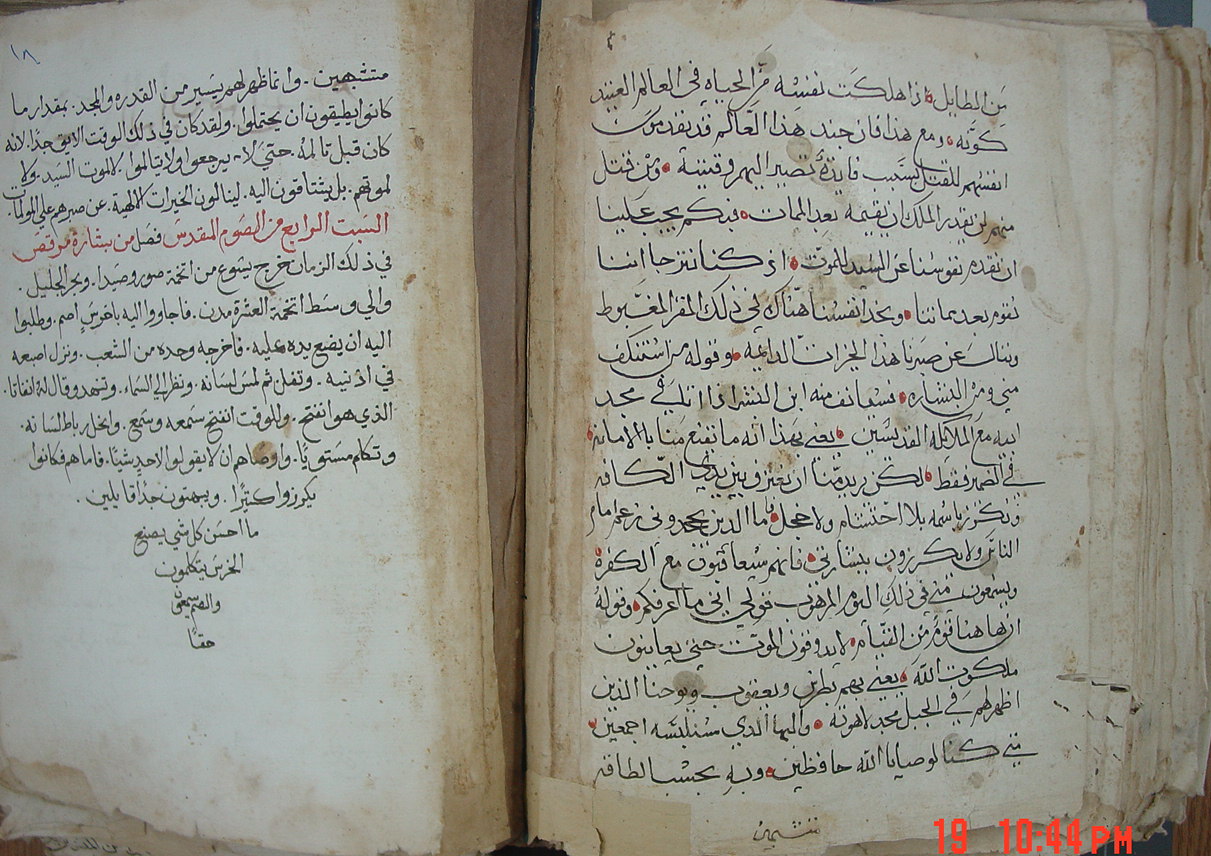 من الطايل اذا هلكت نفسه من الحياه في العالم العتيد
كونه ومع هذا فان جند هذا العالم قد يقدموت
انفسهم للقتل بسبب فايدة تصير اليهم وقنية ومن قتل
منهم لن يقدر الملك ان يقيمه بعد الممات فبكم يجب علينا
ان نقدم نفوسنا عن السيد للموت اذ كنا نترجا اننا
نقوم بعد مماتنا ونجد انفسنا هناك في ذلك المقر المغبوط
وننال عن صبرنا هذا الخيرات الدايمه وقوله من استنكف
مني ومن البشاره فسيانف منه ابن البشر اذا اتي في مجد
ابيه مع الملايكه القديسين يعني بهذا انه ما يقنع منا بالامانه
في الضمير فقط لكن يريد منا ان نعترف بين يدي الكافه
ونكرز باسمه بلا احتشام ولا خجل فاما الذين يجحدوني زعم امام
الناس ولا يكرزون ببشارتي فانهم سيعاقبون مع الكفره
ويسمعون مني في ذلك اليوم المرهوب قولي اني ما اعرفكم وقوله
ان هاهنا قوم من القيام لا يدوقون الموت حتى يعاينون
ملكوت الله يعني بهم بطرس ويعقوب ويوحنا الذين
اظهر لهم في الجبل مجد لاهوته والبها الذي سنلبسه اجمعين
متى كنا لوصايا الله حافظين وبه بحسب الطاقه
متشبهين
١٨
متشبهين . وانما ظهر لهم يسير من القدره والمجد . بمقدار ما
كانوا يطيقون ان يحتملوا . ولقد كان في ذلك الوقت لايق جدا . لانه
كان قبل تالمه . حتى لا يرجعوا ولا يتالموا . لا لموت السيد . ولا
لموتهم . بل يشتاقون اليه . لينالون الخيرات الالهية . عن صبرهم على المولمات .
السبت الرابع من الصوم المقدس فصل من بشارة مرقص
في ذلك الزمان خرج يسوع من اتخمة صور وصيدا . وبحر الجليل .
والي وسط اتخمة العشرة مدن . فاجاووا اليه باخرس اصم . وطلبوا
اليه ان يضع يده عليه . فاخرجه وحده من الشعب . ونزل اصبعه
في اذنيه . وتفل ثم لمس لسانه . ونظر الي السماء . وتنهد وقال له انفاتا .
الذي هو انفتح . وللوقت انفتح سمعه وسمع . وانحل رباط لسانه .
وتكلم مستويًا . واوصاهم ان لا يقولوا لاحدٍ شيئا . فاما هم فكانوا
يكرزوا كتيرًا . ويبهتون جدًا قايلين .
ما احسن كل شي يصنع
الخرس يتكلمون
والصم يسمعون
حقًا
19 10:44 PM